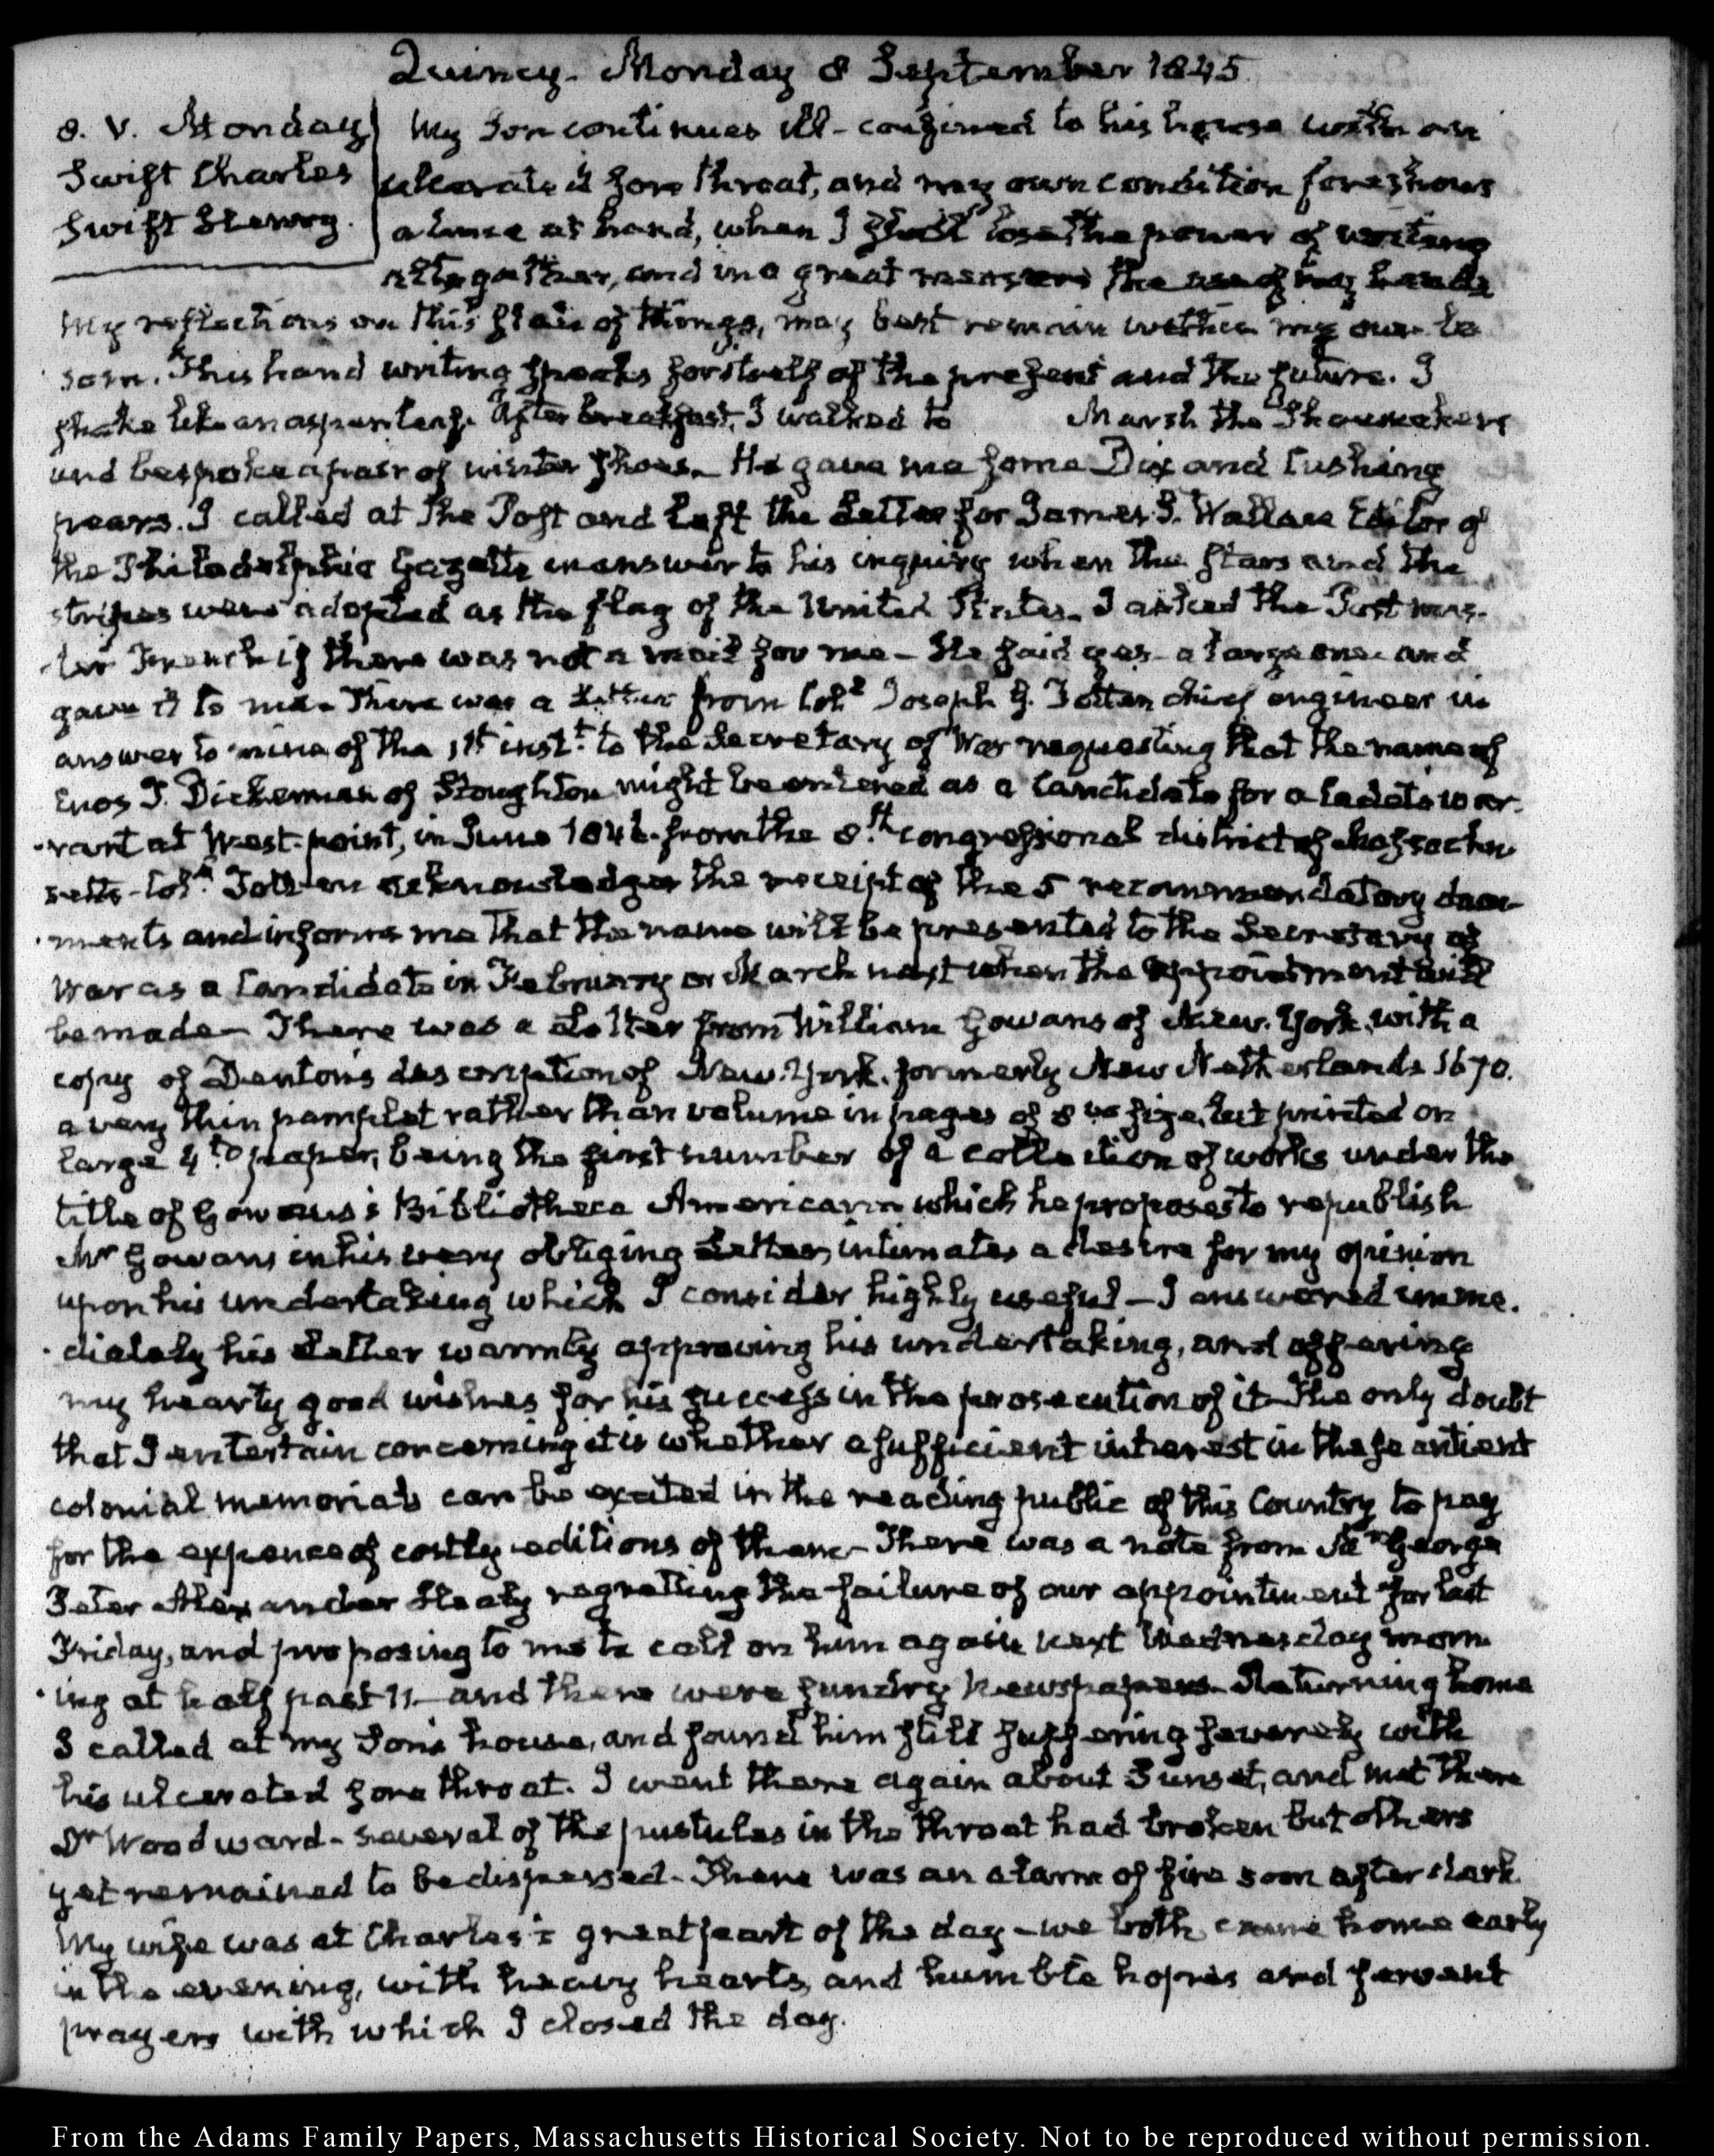 Quincy. Monday 8 September 1845.
8. V. Monday
Swift Charles
Swift Henry.
My Son continues ill - confined to his house with an
ulcerated sore throat, and my own condition foreshows
a time at hand, when I shall lose the power of writing
altogether, and in a great measure the use of my hands
My reflections on this state of things, may best remain within my own bo
som. This hand writing speaks for itself of the present and the future. I
shake like an aspen leaf. After breakfast, I walked to Marsh the Shoemakers
and bespoke a pair of winter shoes. He gave me some Dix and Cushing
pears. I called at the Post and left the Letter for James S. Wallace Editor of
the Philadelphia Gazette in answer to his inquiry when the stars and the
stripes were adopted as the flag of the United States. I asked the Post mas-
ter French if there was not a mail for me - He said yes - a large one and
gave it to me. There was a Letter from Coll Joseph G. Totten chief engineer in
answer to mine of the 1st inst.t to the Secretary of War requesting that the name of
Enos T. Dickerman of Stoughton might be entered as a Candidate for a Cadets war-
rant at West-point, in June 1846 from the 8.th congressional district of Massachu
setts - Coll Totten acknowledges the receipt of the 5 recommendatory docu-
ments and informs me that the name will be presented to the Secretary of
War as a Candidate in February or March next when the appointment will
be made - There was a Letter from William Gowans of New-York, with a
copy of Denton's description of New-York. formerly New Netherlands 1670.
a very thin pamflet rather than volume in pages of 8vo size, but printed on
large 4.to paper, being the first number of a collection of works under the
title of Gowans's Bibliotheca Americana which he proposes to republish
Mr Gowans in his very obliging Letter, intimates a desire for my opinion
upon his undertaking which I consider highly useful - I answered imme-
diately his Letter warmly approving his undertaking, and offering
my hearty good wishes for his success in the prosecution of it - The only doubt
that I entertain concerning it is whether a sufficient interest in these antient
colonial memorials can be excited in the reading public of this Country to pay
for the expence of costly editions of them - There was a note from Mr George
Peter Alexander Healy regretting the failure of our appointment for last
Friday, and proposing to me to call on him again next Wednesday morn
ing at half past 11 - and there were sundry Newspapers. Returning home
I called at my Son's house, and found him still suffering severely with
his ulcerated sore throat. I went there again about Sunset, and met there
Dr Woodward - several of the pustules in the throat had broken but others
yet remained to be dispersed - There was an alarm of fire soon after dark
My wife was at Charles's great part of the day - we both came home early
in the evening, with heavy hearts, and humble hopes and fervent
prayers with which I closed the day.
From the Adams Family Papers, Massachusetts Historical Society. Not to be reproduced without permission.